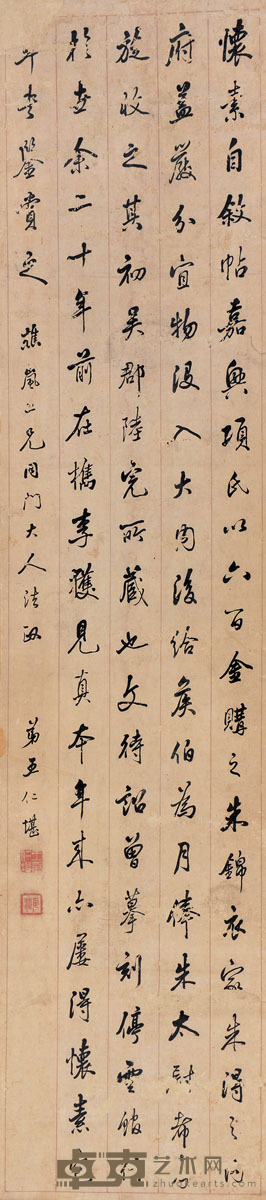 懷素自敘帖嘉興項氏以六百金購之朱錦衣家朱得之內
府蓋嚴分宜物沒入大內後給侯伯為月俸朱太尉希孝
旋收之其初吳郡陸完所藏也文待詔曾摹刻停雲館行
於世余二十年前在檇李獲見真本年來亦屢得懷素
草書鑒賞之 蘸嵐二兄同門大人法正
弟王仁堪
卓克艺术网